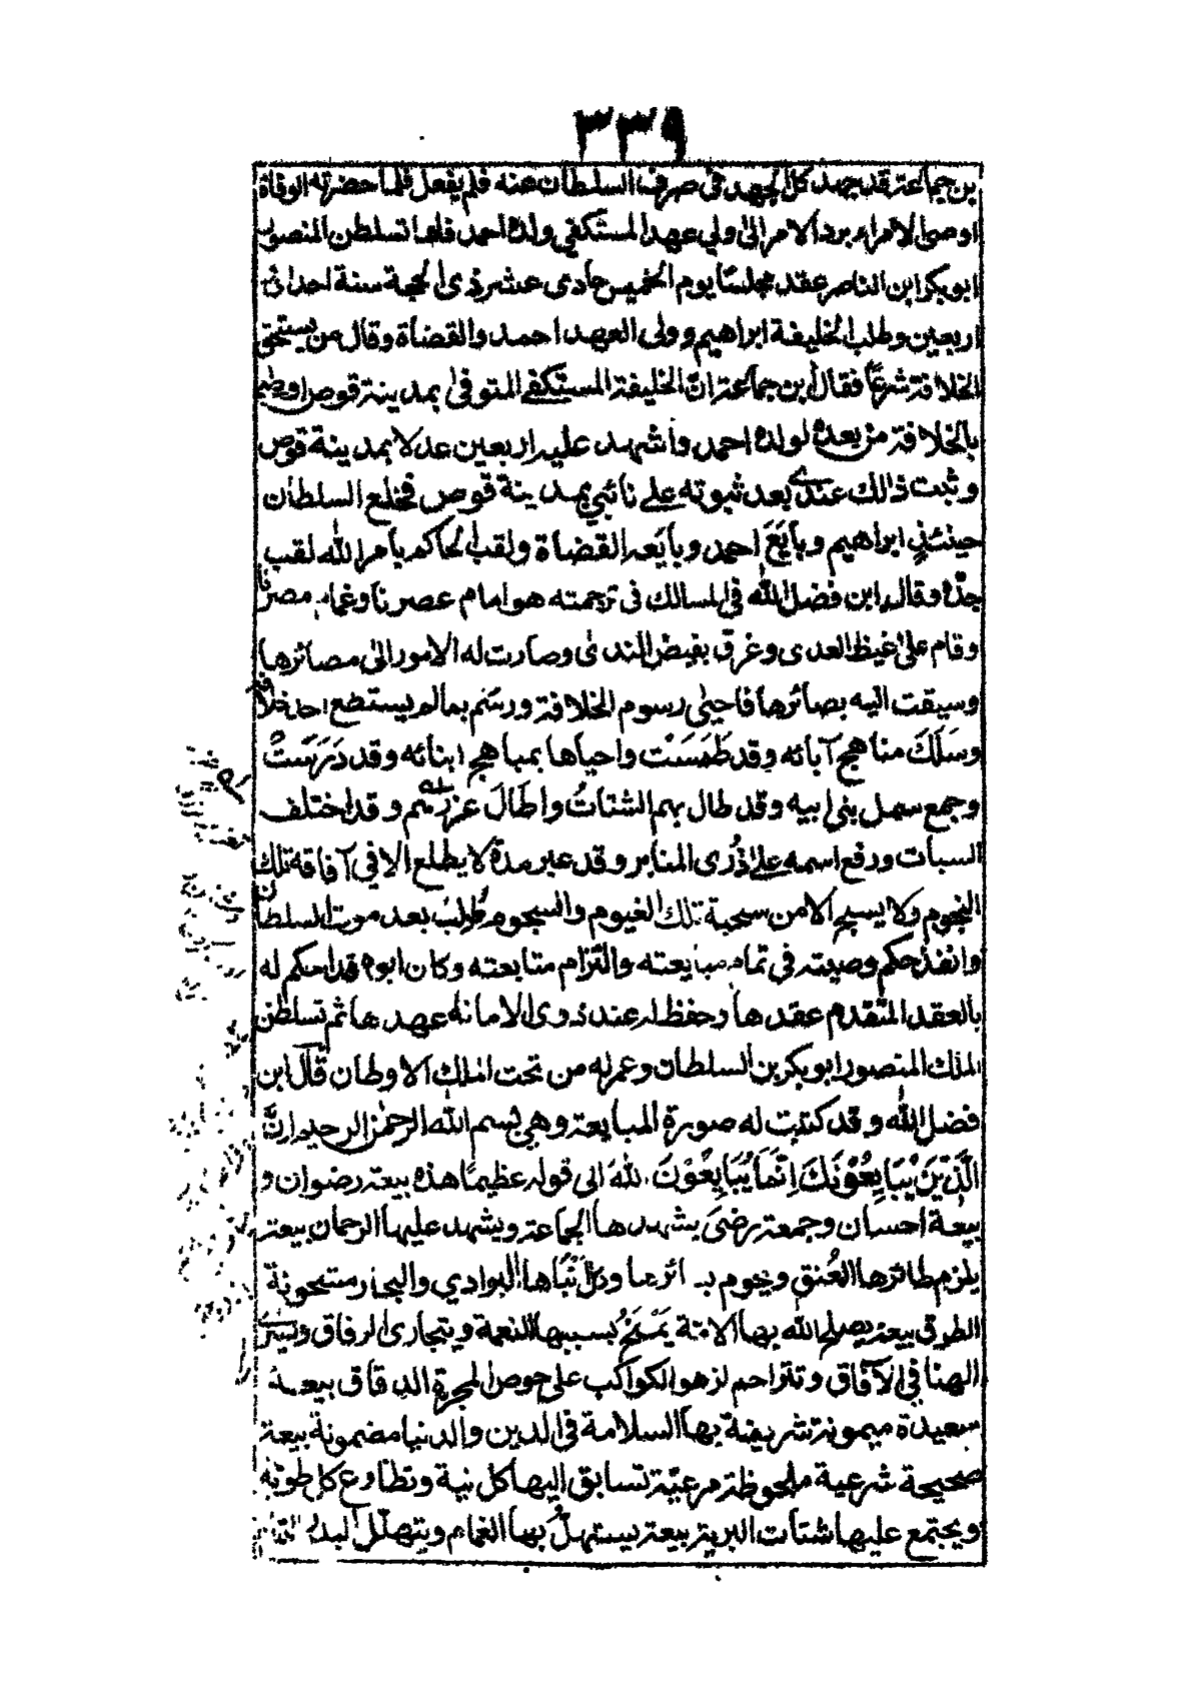 ٣٣٩
بن جماعة قد جهد كل الجهد فى صرف السلطان عنه فلم يفعل فلما حضرته الوفاة
اوصى الامراء برد الامر الى ولي عهد المستكفي ولده احمد فلما تسلطن المنصور
ابو بكر ابن الناصر عقد مجلسًا يوم الخميس حادى عشر ذى الحجة سنة احدى و
اربعين وطلب الخليفة ابراهيم وولى العهد احمد والقضاة وقال من يستحق
الخلافة شرعًا فقال ابن جماعة ان الخليفة المستكفي المتوفى بمدينة قوص اوصى
بالخلافة من بعده لولده احمد واشهد عليه اربعين عدلا بمدينة قوص
وثبت ذالك عندي بعد ثبوته على نائبي بمدينة قوص فخلع السلطان
حينئذٍ ابراهيم وبايَعَ احمد وبايعه القضاة ولقب الحاكم بامر الله لقب
جدّه وقال ابن فضل الله في المسالك فى ترجمته هو امام عصرنا وغمام مصرنا
وقام على غيظ العدى وغرق بفيض الندى وصارت له الامور الى مصائرها
وسيقت اليه بصائرها فاحيٰى رسوم الخلافة ورسم بما لم يستطع احد خلافه
وسَلَكَ مناهج آبائه وقد طَمَسَت واحياها بمباهج ابنائه وقد دَرَسَتْ
وجمع سمل بنى ابيه وقد طال بهم الشتات واطَالَ عزرهم وقد اختلف
السبات ورفع اسمه على ذُرى المنابر وقد عبر مدة لا يطلع الا في آفاقه تلك
النجوم ولا يسبح الا من سحبة تلك الغيوم والسجوم طُلِبَ بعد موت السلطان
وانفذ حكم وصيته في تمام مبايعته والتزام متابعته وكان ابوه قد احكم له
بالعقد المتقدم عقدها وحفظ له عند ذوى الامانة عهدها ثم تسلطن
الملك المنصور ابو بكر بن السلطان وعمر له من تحت الملك الاوطان قال ابن
فضل الله وقد كتبت له صورة المبايعة وهي بسم الله الرحمٰن الرحيم اِنَّ
الَّذِيْنَ يُبَايِعُوْنَكَ اِنَّمَا يُبَايِعُوْنَ اللهَ الى قوله عظيمًا هذه بيعة رضوان و
بيعة احسان وجمعة رضىَ يشهدها الجماعة ويشهد عليها الرحمان بيعة
يلزم طائرها العُنق و يحوم بسائرها و انباءها البوادي والبحار مشحونة
الطرق بيعة يصلح الله بها الامّة يَمْنَحُ بسببها النعمة ويتجارى الرفاق ويسرى
الهنا في الآفاق وتتزاحم لزهر الكواكب على حوض المجرة الدقاق بيعة
سعيدة ميمونة شريفة بها السلامة فى الدين والدنيا مضمونة بيعة
صحيحة شرعية ملحوظة مرعيّة تسابق اليها كل نية وتطاوع كل طويّة
ويجتمع عليها شتات البرية بيعة يستهلّ بها الغمام ويتهلّل البدر